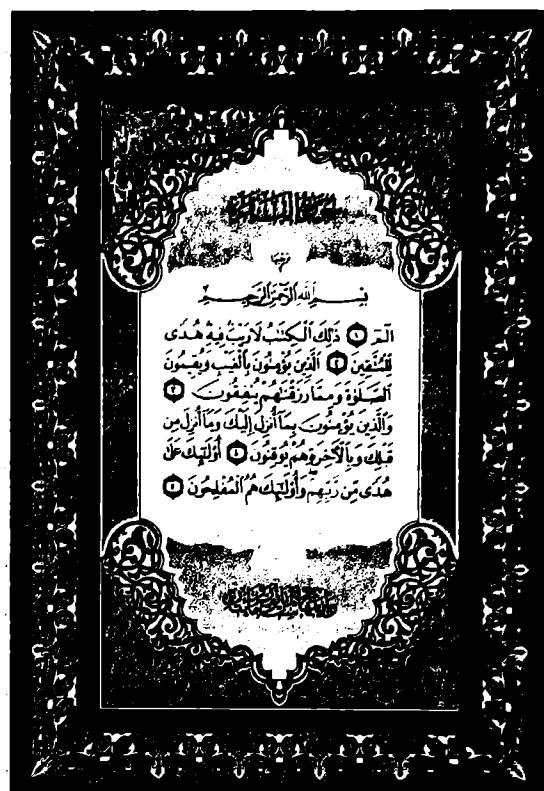 بِسْمِ اللَّهِ الرَّحْمَٰنِ الرَّحِيمِ
الٓمٓ ۝١ ذَٰلِكَ الْكِتَٰبُ لَا رَيْبَ ۛ فِيهِ ۛ هُدًى
لِّلْمُتَّقِينَ ۝٢ الَّذِينَ يُؤْمِنُونَ بِالْغَيْبِ وَيُقِيمُونَ
الصَّلَوٰةَ وَمِمَّا رَزَقْنَٰهُمْ يُنفِقُونَ ۝٣
وَالَّذِينَ يُؤْمِنُونَ بِمَآ أُنزِلَ إِلَيْكَ وَمَآ أُنزِلَ مِن
قَبْلِكَ وَبِالْءَاخِرَةِ هُمْ يُوقِنُونَ ۝٤ أُو۟لَٰٓئِكَ عَلَىٰ
هُدًى مِّن رَّبِّهِمْ ۖ وَأُو۟لَٰٓئِكَ هُمُ الْمُفْلِحُونَ ۝٥